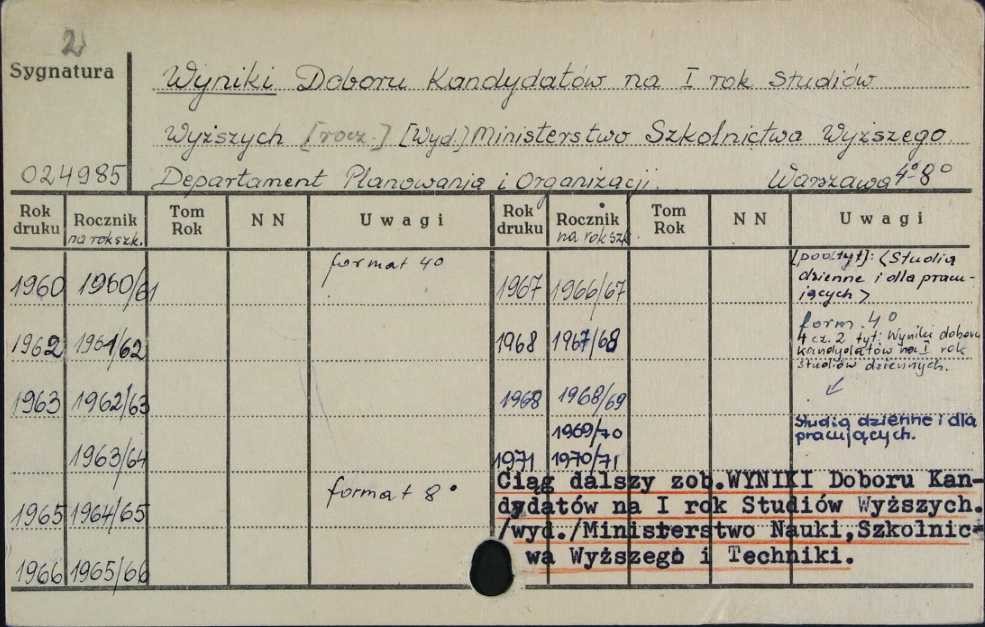 2
Sygnatura
Wyniki Doboru Kandydatów na I rok Studiów
Wyższych [rocz.] [Wyd.] Ministerstwo Szkolnictwa Wyższego.
024985 Departament Planowania i Organizacji. Warszawa 4° 8°
Rok druku Rocznik na rok szk. Tom Rok N N Uwagi Rok druku Rocznik na rok szk. Tom Rok N N Uwagi
1960 1960/61 format 4°
1962 1961/62
1963 1962/63
1963/64
1965 1964/65 format 8°
1966 1965/66
1967 1966/67 [podtyt]: (Studia
dzienne i dla pracu-
jących)
1968 1967/68 form. 4°
4 cz. 2 tyt: Wyniki doboru
kandydatów na I rok
studiów dziennych.
1968 1968/69
1969/70 Studia dzienne i dla
1971 1970/71 pracujących.
Ciąg dalszy zob. WYNIKI Doboru Kan-
dydatów na I rok Studiów Wyższych.
/wyd./Ministerstwo Nauki,Szkolnic-
wa Wyższego i Techniki.